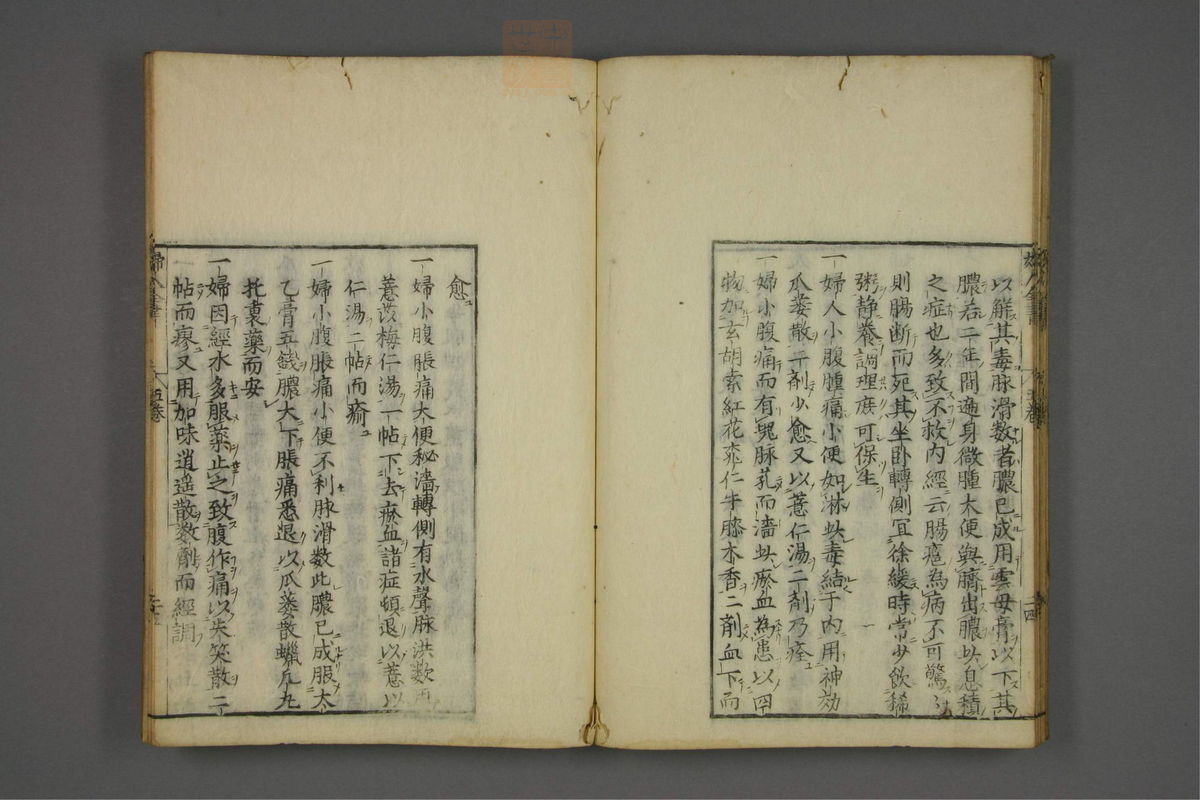 以解其毒脉滑数者膿已成用雲母膏以下其
膿若二年間遍身微腫大便與臍出膿此息積
之症也多致不救内經云腸癰為病不可驚
則腸断而死其坐卧轉側冝徐緩時常少飲稀
粥静養調理庻可保生
一婦人小腹腫痛小便如淋此毒結于内用神効
瓜蒌散二剤少愈又以薏仁湯二剤乃痊
一婦小腹痛而有塊脉芤而濇此瘀血為患以四
物加玄胡索紅花桃仁牛膝木香二剤血下而
愈
一婦小腹脹痛大便秘濇轉側有水聲脉洪数用
薏苡梅仁湯一帖下去瘀血諸症頓退以薏苡
仁湯二帖而瘉
一婦小腹脹痛小便不利脉滑数此膿已成服太
乙膏五銭膿大下脹痛悉退以瓜蒌散蠟凡丸
托裏藥而安
一婦因經水多服薬止之致腹作痛以失笑散二
帖而瘳又用加味逍遥散数剤而經調